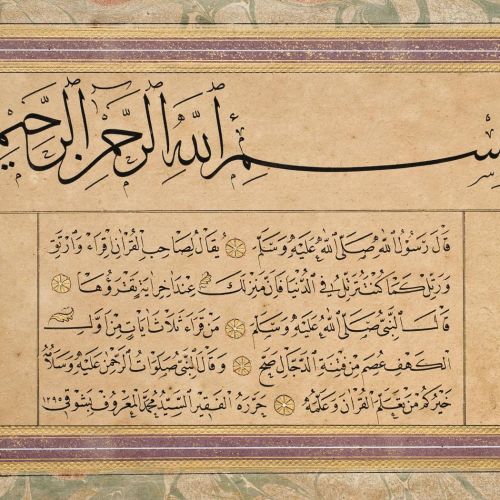 بسم الله الرحمن الرحيم
قَالَ رَسُولُ اللهِ صَلَّى اللهُ عَلَيْهِ وَسَلَّمَ يُقَالُ لِصَاحِبِ القُرْآنِ اِقْرَاءْ وَارْتَقِ
وَرَتِّلْ كَمَا كُنْتَ تُرَتِّلُ فِي الدُّنْيَا فَاِنَّ مَنْزِلَكَ عِنْدَ اٰخِرِ اٰيَةٍ تَقْرَؤُهَا
قَالَ النَّبِيُّ صَلَّى اللهُ عَلَيْهِ وَسَلَّمَ مَنْ قَرَاءَ ثَلَاثَ اٰيَاتٍ مِنْ اَوَّلِ
الكَهْفِ عُصِمَ مِنْ فِتْنَةِ الدَّجَّالِ صح وَقَالَ النَّبِيُّ صَلَوَاتُ الرَّحْمٰنِ عَلَيْهِ وَسَلَامُهُ
خَيْرُكُمْ مَنْ تَعَلَّمَ القُرْآنَ وَعَلَّمَهُ حَرَّرَهُ الفَقِيرُ السَّيِّدُ مُحَمَّدُ المَعْرُوفُ بِشَوْقِي ١٢٩٥